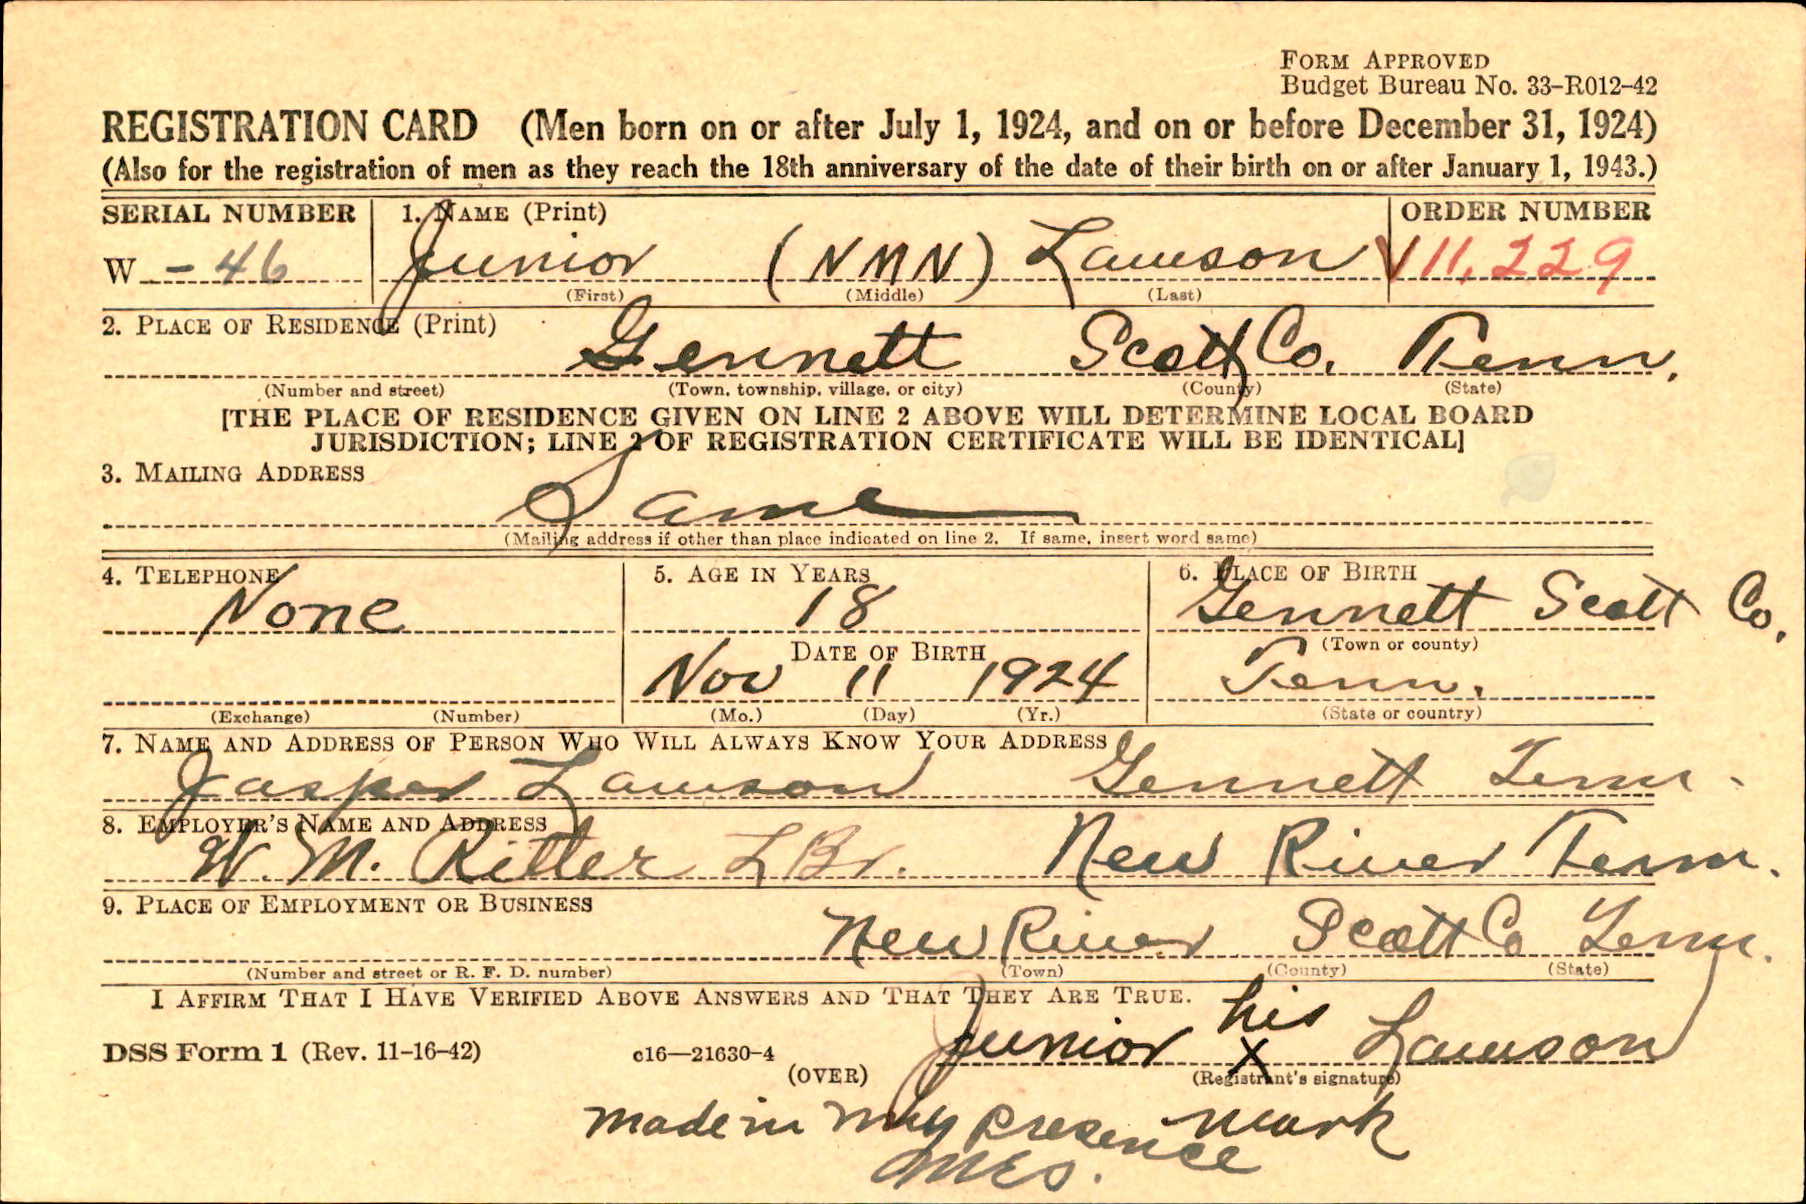 FORM APPROVED
Budget Bureau No. 33-R012-42
REGISTRATION CARD (Men born on or after July 1, 1924, and on or before December 31, 1924)
(Also for the registration of men as they reach the 18th anniversary of the date of their birth on or after January 1, 1943.)
SERIAL NUMBER 1. NAME (Print) ORDER NUMBER
W - 46 Junior (NMN) Lawson 11,229
(First) (Middle) (Last)
2. PLACE OF RESIDENCE (Print)
Gennett Scott Co. Tenn.
(Number and street) (Town, township, village, or city) (County) (State)
[THE PLACE OF RESIDENCE GIVEN ON LINE 2 ABOVE WILL DETERMINE LOCAL BOARD
JURISDICTION; LINE 2 OF REGISTRATION CERTIFICATE WILL BE IDENTICAL]
3. MAILING ADDRESS
Same
(Mailing address if other than place indicated on line 2. If same, insert word same)
4. TELEPHONE 5. AGE IN YEARS 6. PLACE OF BIRTH
None 18 Gennett Scott Co.
DATE OF BIRTH (Town or county)
Nov 11 1924 Tenn.
(Exchange) (Number) (Mo.) (Day) (Yr.) (State or country)
7. NAME AND ADDRESS OF PERSON WHO WILL ALWAYS KNOW YOUR ADDRESS
Jasper Lawson Gennett Tenn.
8. EMPLOYER'S NAME AND ADDRESS
W. M. Ritter LBr. New River Tenn.
9. PLACE OF EMPLOYMENT OR BUSINESS
New River Scott Co Tenn.
(Number and street or R. F. D. number) (Town) (County) (State)
I AFFIRM THAT I HAVE VERIFIED ABOVE ANSWERS AND THAT THEY ARE TRUE.
his
DSS Form 1 (Rev. 11-16-42) c16—21630-4 Junior X Lawson
(OVER) (Registrant's signature)
made in my presence mark